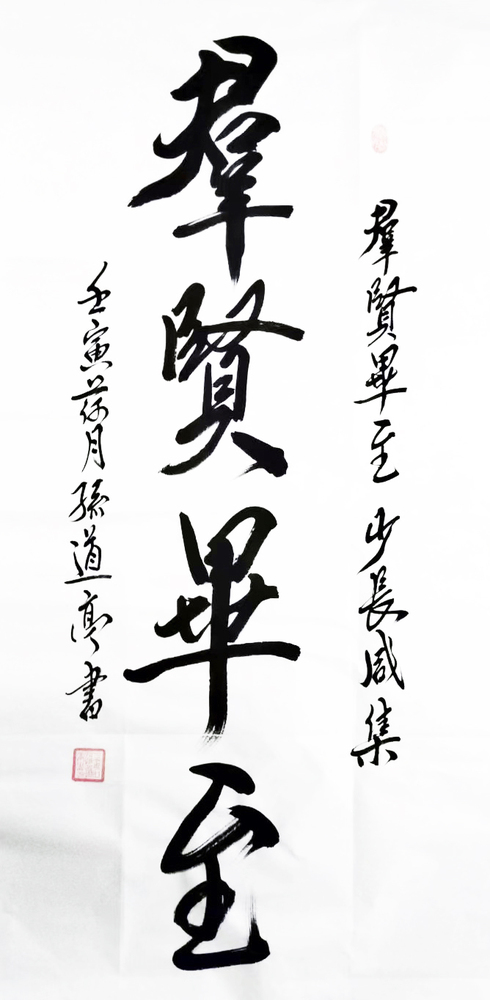 羣賢畢至 少長咸集
羣賢畢至
壬寅荷月孫道亮書